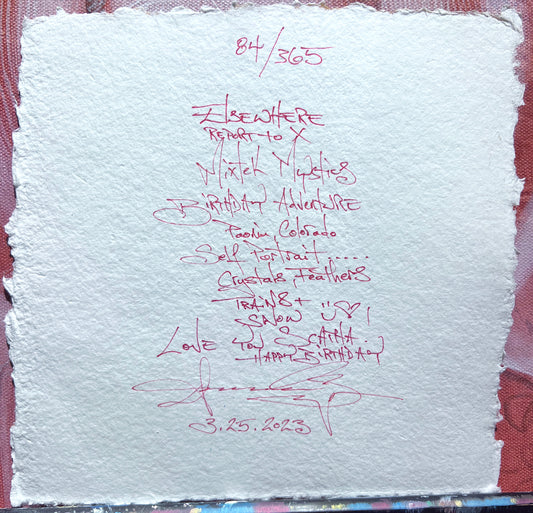 84/365
ELSEWHERE
REPORT to X
Mixtek Mystics
BIRTHDAY AdventURE
Paonia, Colorado
Self Portrait.....
Crystals, Feathers
TRAINS +
SNOW ü♡!
LOVE YOU SCAIHA.
HAPPY BIRTHDAY
3.25.2023